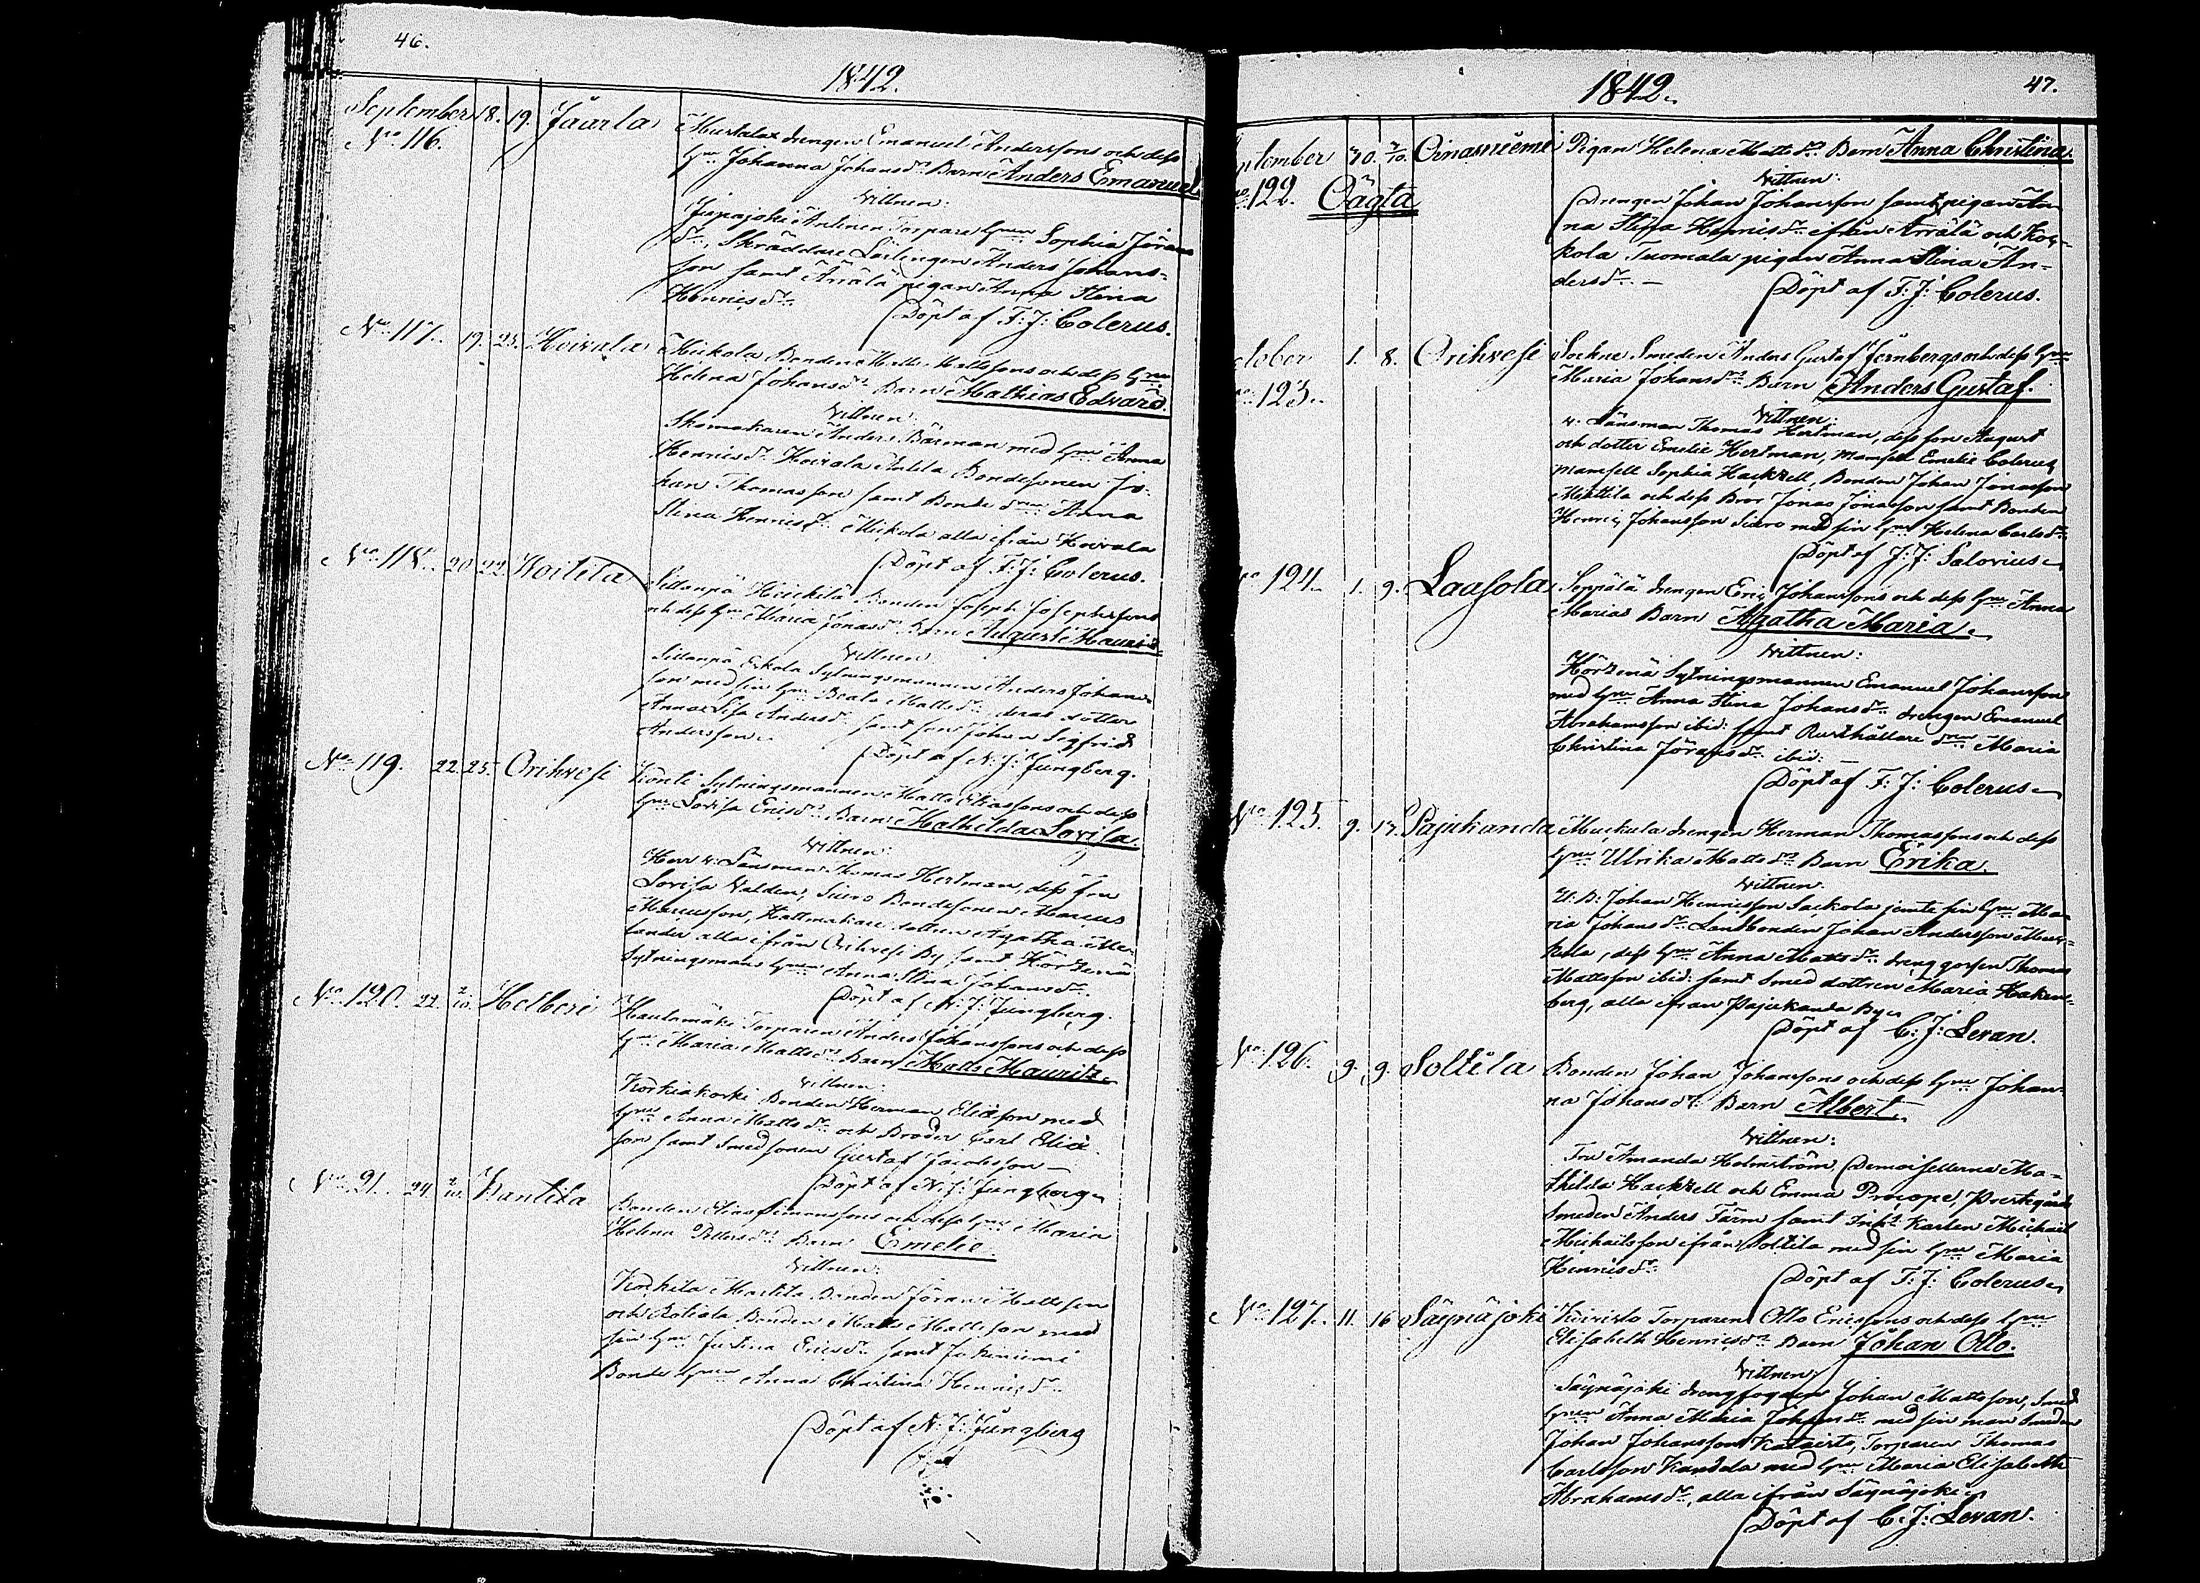 46.
1842.
September 18. 19. Jäärla Murtala drengen Emanuel Anderssons och dess
No 116. Hru Johanna Johansdr Barn Anders Emanuel
Vittnen:
Antinen Torpare Hrun Sophia Jörans
dr, Skräddare Lärlingen Anders Johans-
son samt Ärrälä pigan Anna Stina
Henricsdr
Döpt af F: J: Colerus.
No 117. 19. 25. Hoivala Mickola Bonden Matts Mattssons och dess Hru
Helena Johansdr Barn Mathias Edvard.
Vittnen:
Skomakaren Anders Bärman med Hru Anna
Henricsdr Hoivala Anttila Bondesonen Jo-
han Thomasson samt Bonde drn Anna
Stina Henricsdr Mickola alla ifrån Hoivala
Döpt af F: J: Colerus.
No 118. 20. 22. Koitila Sillanpä Bonden Joseph Josephssons
och dess Hru Maria Jonasdr Barn August Maurits
Vittnen:
Sillanpä Eskola Sytningsmannen Anders Johans-
son med sin Hru Beata Mattsdr deras dotter
Anna Lisa Andersdr samt son Johan Sigfrid
Andersson.
Döpt af N: J: Jungberg.
No 119. 22. 25. Orihvesi Kontti Sytningsmannen Matts och dess
Hru Lovisa Ericsdr Barn Mathilda Lovisa.
Vittnen:
Herr v. Länsman Thomas Hertman, dess fru
Lovisa Walden, Siuro Bondesonen Marcus
Marcusson, Hattmakare dottren Agatha
lander alla ifrån Orihvesi By samt Körkenä
Sytningsmans Hrun Anna Stina Johansdr.
Döpt af N: J: Jungberg.
No 120. 22. 2/10. Helberi Hautamäki Torparen Anders Johanssons och dess
Hru Maria Mattsdr Barn Matts Mauritz.
Vittnen:
Korkiakoski Bonden Herman Eliasson med
Hru Anna Mattsdr och Broder Carl Elias-
son samt Smedsonen Gustaf Jacobsson
Döpt af N: J: Jungberg.
No 21. 24. 2/10. Kantila Bonden Elias Simonssons och dess Hru Maria
Helena Pettersdr Barn Emelie.
Vittnen:
Kockila Marttila Bonden Jöran Mattsson
och Bonden Matts Mattsson med
sin Hru Justina Ericsdr samt
Bonde Hrun Anna Christina Henricsdr
Döpt af N: J: Jungberg
1842.
47.
ptember 20. 2/10. Oinasniemi Pigan Helena Mattsdr Barn Anna Christina.
No 122. Oägta
Vittnen:
Drengen Johan Johansson samt pigan An-
na Stina Henricsdr ifrån Ärrälä och Kos-
kola Tuomala pigan Anna Stina An-
dersdr.
Döpt af F: J: Colerus.
ctober 1. 8. Orihvesi Sockne Smeden Anders Gustaf Jernbergs och dess Hru
No 123. Maria Johansdr Barn Anders Gustaf.
Vittnen:
v. Länsman Thomas Hertman, dess son August
och dotter Emelie Hertman, mamsell Emelie Colerus,
mamsell Sophia Hackzell, Bonden Johan Jonasson
Mattila och dess Bror Jonas Jonasson samt Bonden
Henric Johansson Siuro med sin Hru Helena Carlsdr
Döpt af J: J: Salovius.
No 124. 1. 9. Laasola Seppälä drengen Eric Johanssons och dess Hru Anna
Marias Barn Agatha Maria.
Vittnen:
Körkenä Sytningsmannen Emanuel Johansson
med Hru Anna Stina Johansdr drengen Emanuel
Abrahamsson ibid: samt Rusthållare drn Maria
Christina Jöransdr ibid:
Döpt af F: J: Colerus.
No 125. 9. 17. Pajukanda Muckula drengen Herman Thomassons och dess
Hru Ulrika Mattsdr Barn Erika.
Vittnen:
U: B: Johan Henricsson Lackola jemte sin Hru Ma-
ria Johansdr Landbonden Johan Andersson Muc-
kula, dess Hru Anna Mattsdr dreng gossen Thomas
Mattsson ibid: samt Smed dottren Maria Haken-
berg, alla ifrån Pajukanda By.
Döpt af C: J: Levan.
No 126. 9. 9. Soltila Bonden Johan Johanssons och dess Hru Johan-
na Johansdr Barn Albert.
Vittnen:
Fru Amanda Holmström, Demoisellerna Ma-
thilda Hackzell och Emma Procopé, Prestgårds
Smeden Anders Färm samt Inhs Karlen Michael
Michaelsson ifrån Soltila med sin Hru Maria
Henricsdr
Döpt af F: J: Colerus.
No 127. 11. 16 Säynäjoki Koivisto Torparen Otto Ericssons och dess Hru
Elisabeth Henricsdr Barn Johan Otto.
Vittnen:
Säynäjoki drengfogden Johan Mattsson, Smed
Hrun Anna Maria Johansdr med sin man Smeden
Johan Johansson Kataisto, Torparen Thomas
Carlsson Kandola med Hru Maria Elisabeth
Abrahamsdr, alla ifrån Säynäjoki.
Döpt af C: J: Levan.